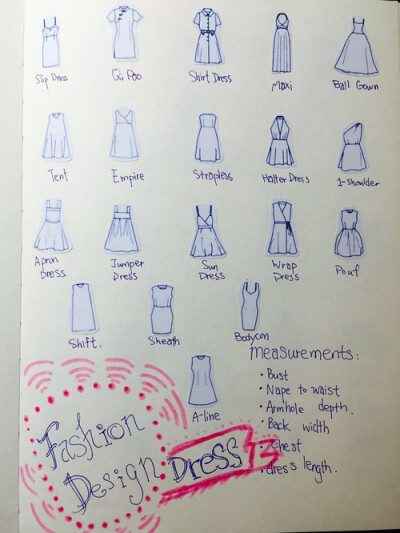 Slip Dress
Qi Pao
Shirt Dress
Maxi
Ball Gown
Tent
Empire
Strapless
Halter Dress
1-shoulder
Apron
Dress
Jumper
Dress
Sun
Dress
Wrap
Dress
Pouf
Shift.
Sheath
Bodycon
A-line
Measurements:
• Bust
• Nape to waist
• Armhole depth.
• Back width
• Chest
• dress length.
Fashion
Design
Dress